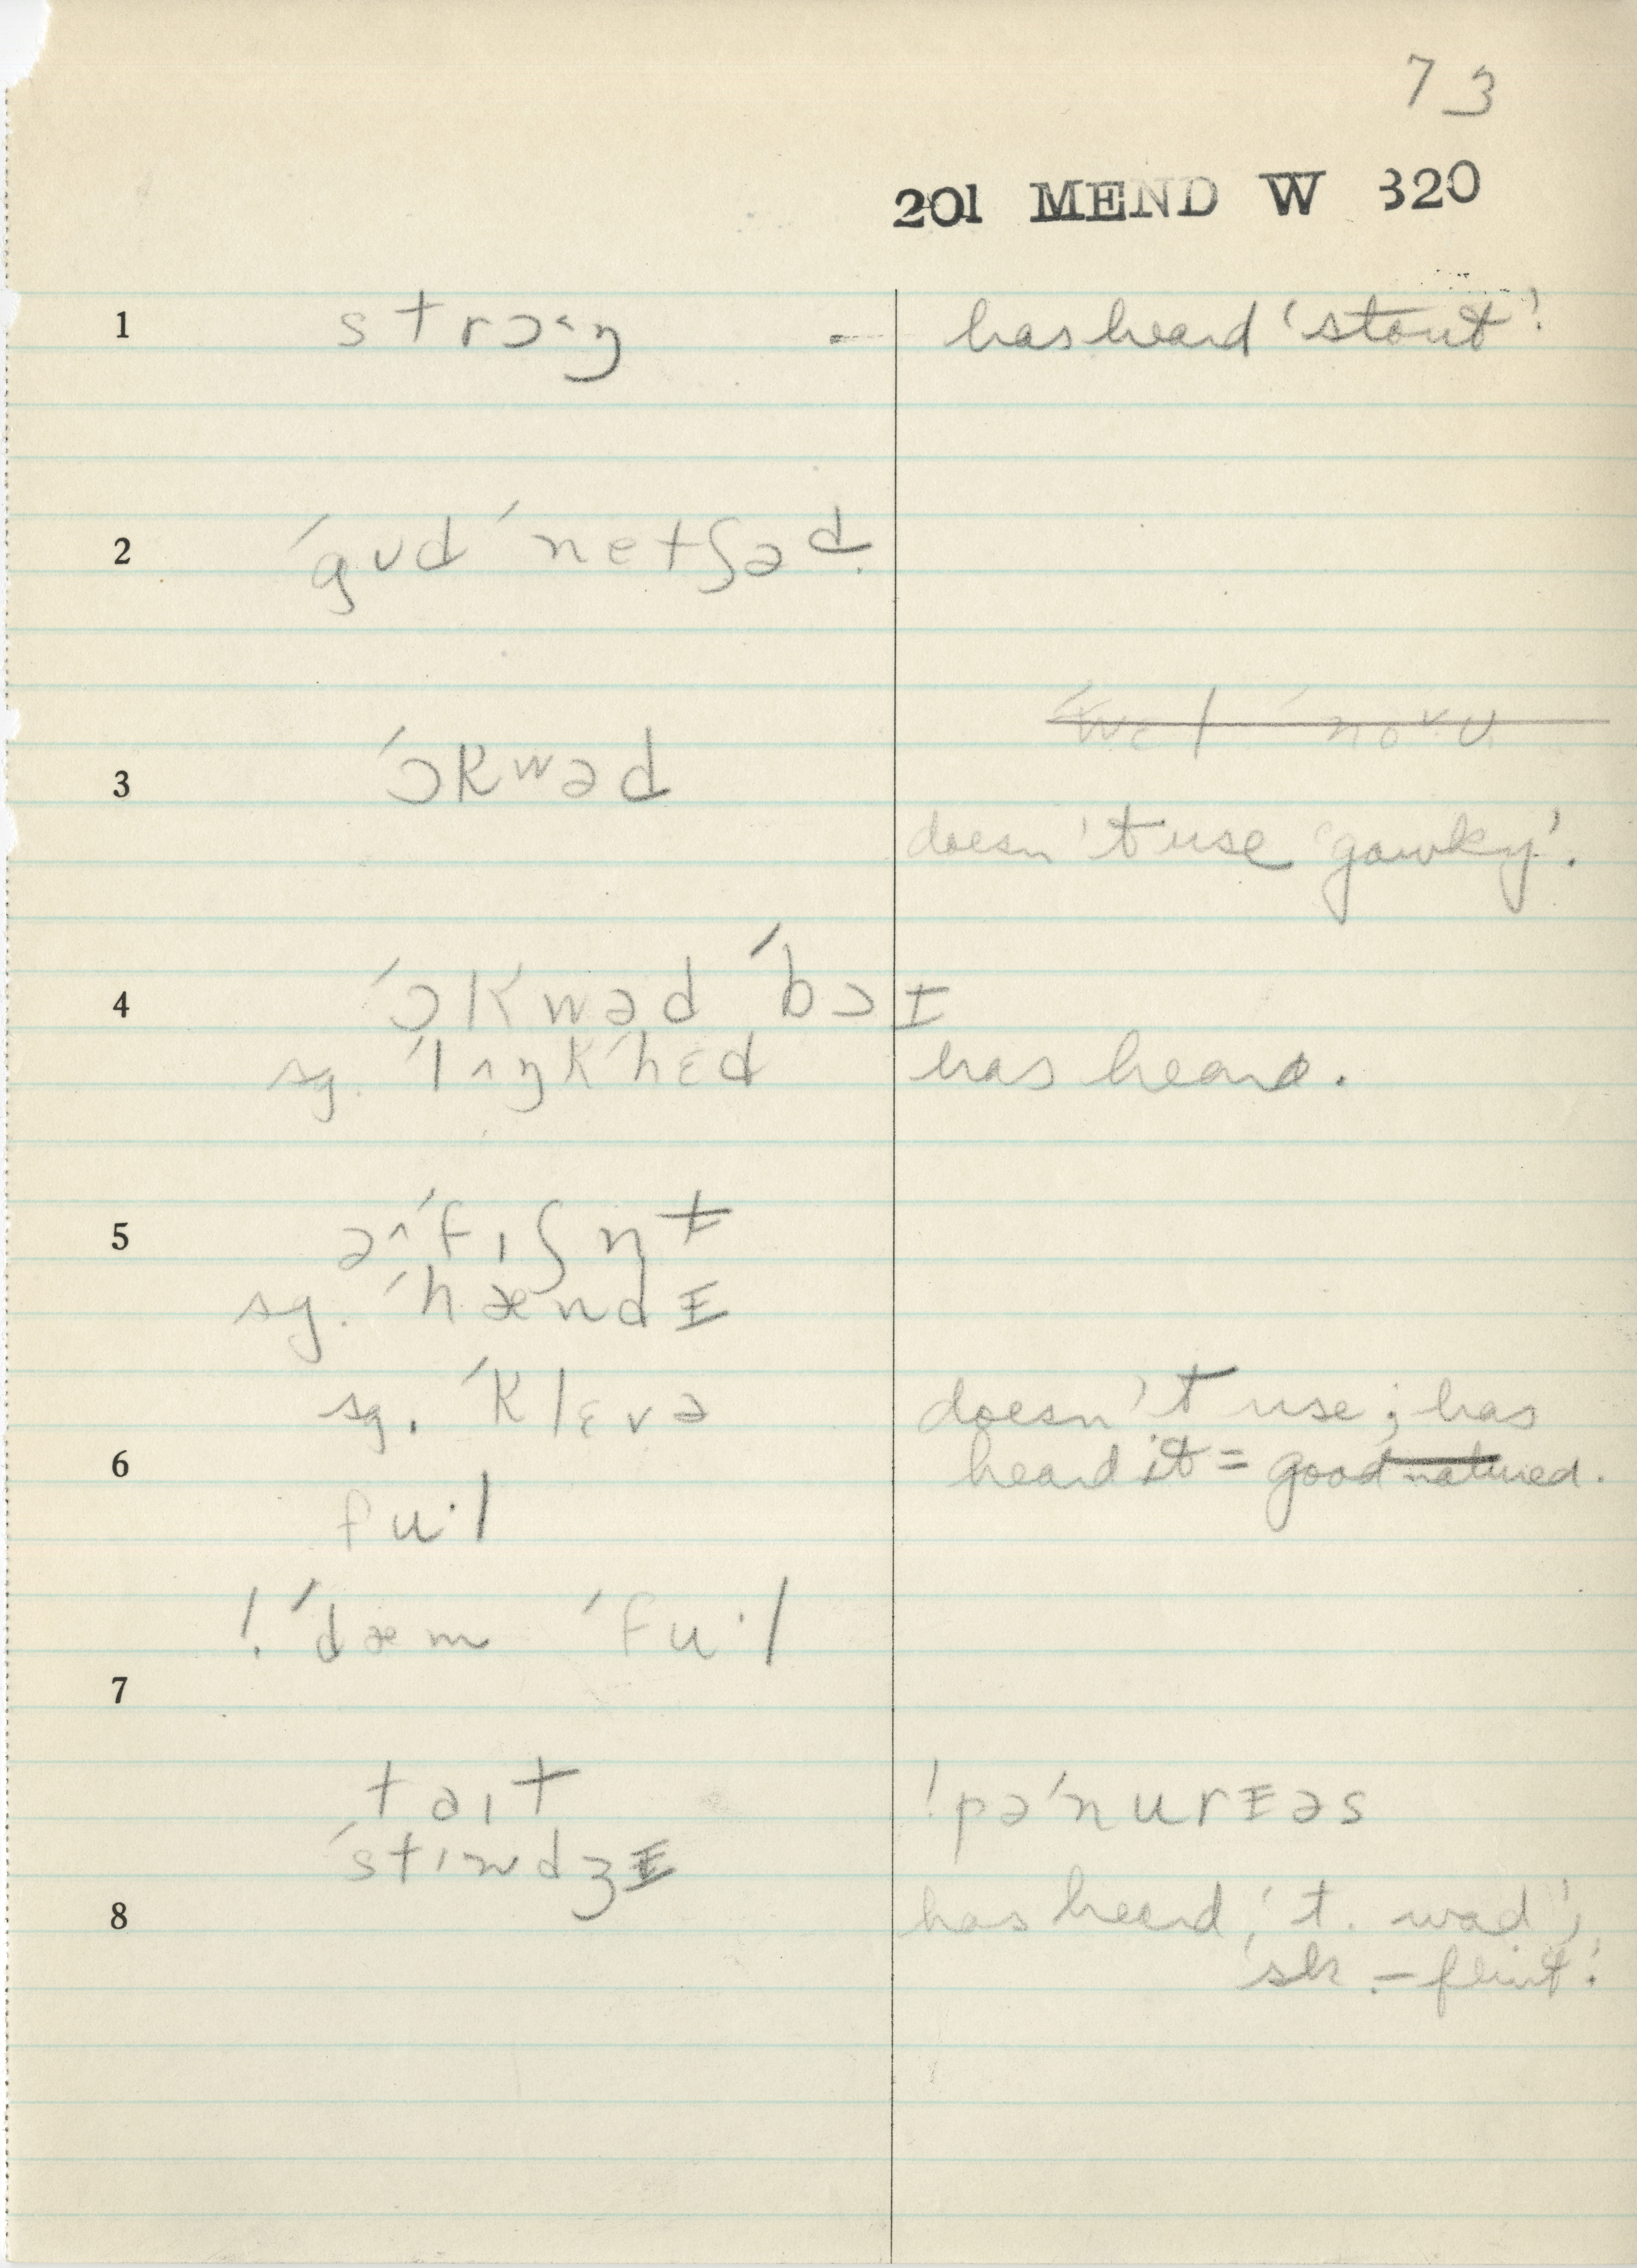 73
201 MEND W 320
1 strɔ˂ŋ - has heard 'stout'.
2 ´gʊd ´netʃəd.
3 ´ɔkwəd
doesn't use 'gawky'.
4 ´ɔkwəd ´bɔɪ
sg. ´lʌŋk´hɛd has heard.
5 ə^´fɪʃn̩t
sg. ´hændɪ
sg. ´klɛvə doesn't use; has
6 heard it = good-natured.
fu·l
! ´dæm ´fu·l
7
taɪt ! pə´nurɪəs
´stɪndʒɪ
8 has heard 't. wad';
'sk.-flint'.